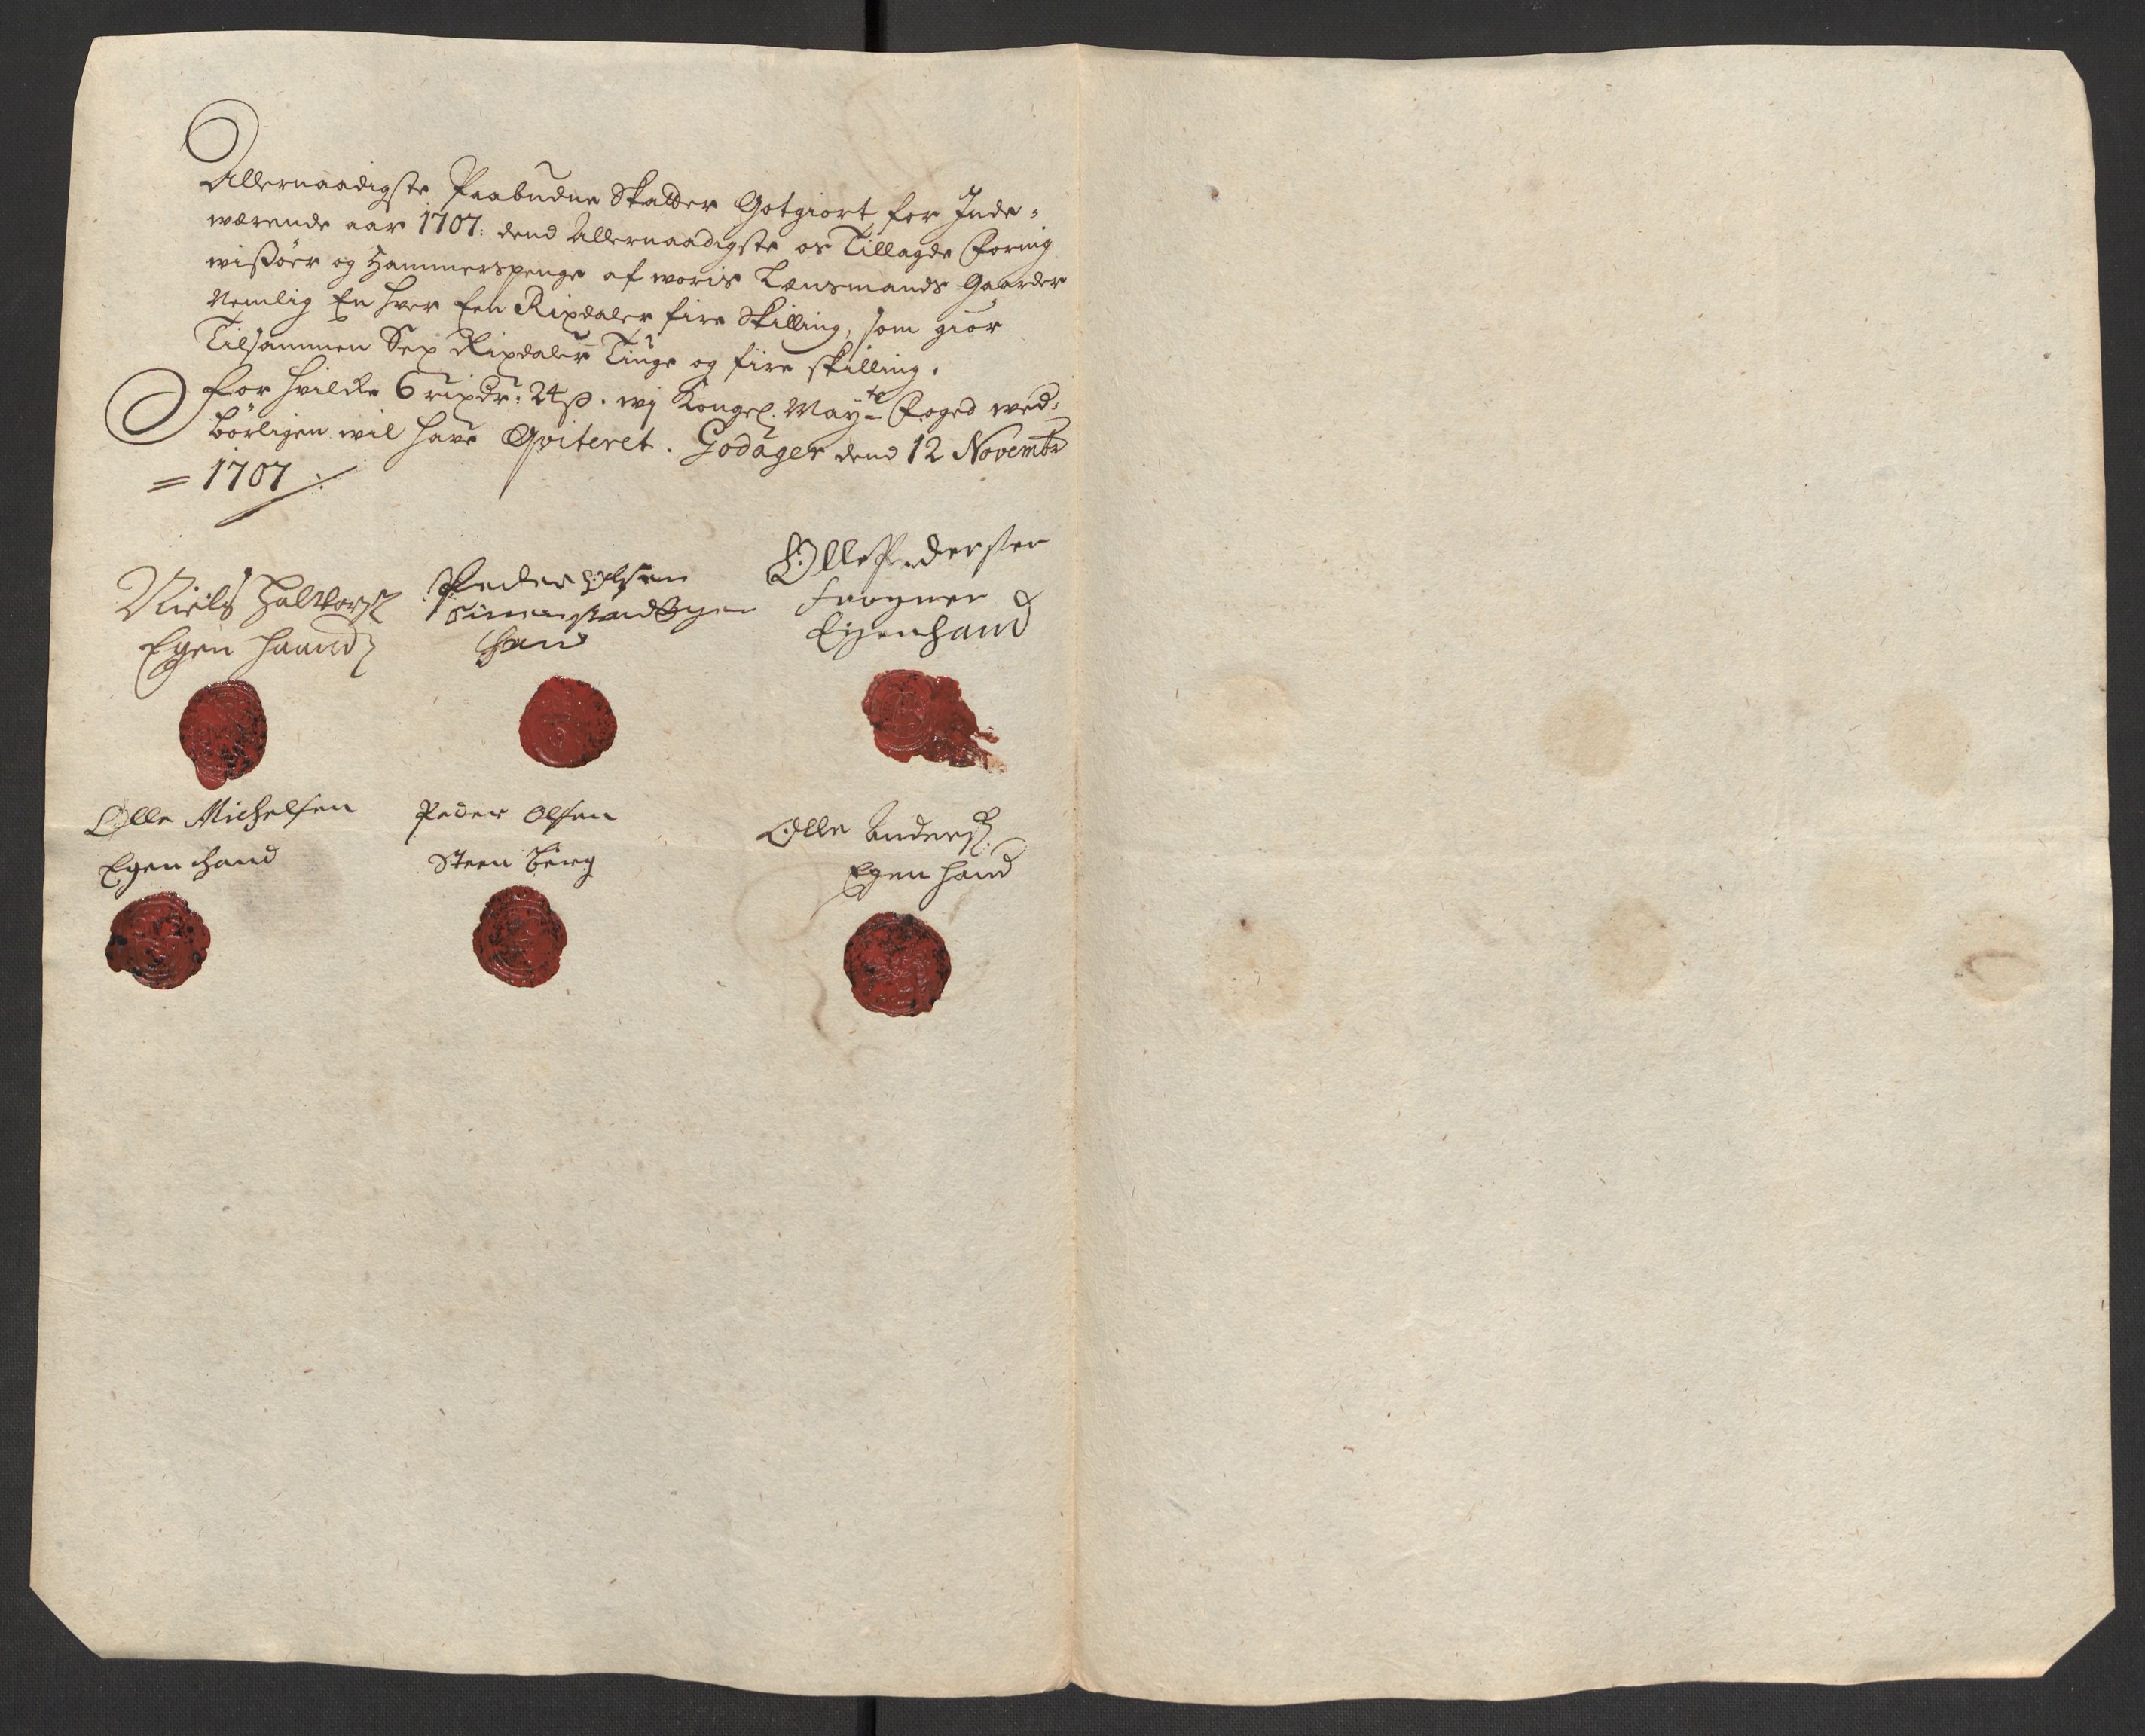 Allernaadigste Paabudne Skatter Gotgiort for Inde=
wærende aar 1707: dend Allernaadigste os Tillagde Foring
wißöer og Hammerspenge af woris Lænsmands Gaarder
Nemlig En hver Een Rixdaler fire Skilling, som giör
Tilsammen Sex Rixdaler Tiuge og fire skilling.
For hvilcke 6 rixdr: 24 ß. wj Kongel. Maytz Foged wed=
börligen wil have Qviteret. Godager dend 12 Novembr
= 1707
Niels Halvors
Egen haand
Peder Olsen
Egen
hand
Olle Pedersen
Frogner
Eigen hand
Olle Michelsen
Egen hand
Peder Olsen
Steen berg
Olle Anders
Egen hand